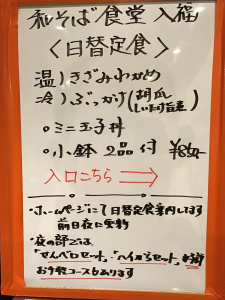 和そば食堂 入福
〈日替定食〉
温)きざみわかめ
冷)ぶっかけ(胡瓜
しいたけ旨煮)
◦ミニ玉子丼
◦小鉢 2品 付 ¥850-
入口こちら ⇒
・ホームページにて日替定食案内してます
前日夜に更新
・夜の部では、
「せんべロセット」、「ハイボールセット」、
お手軽コースもあります